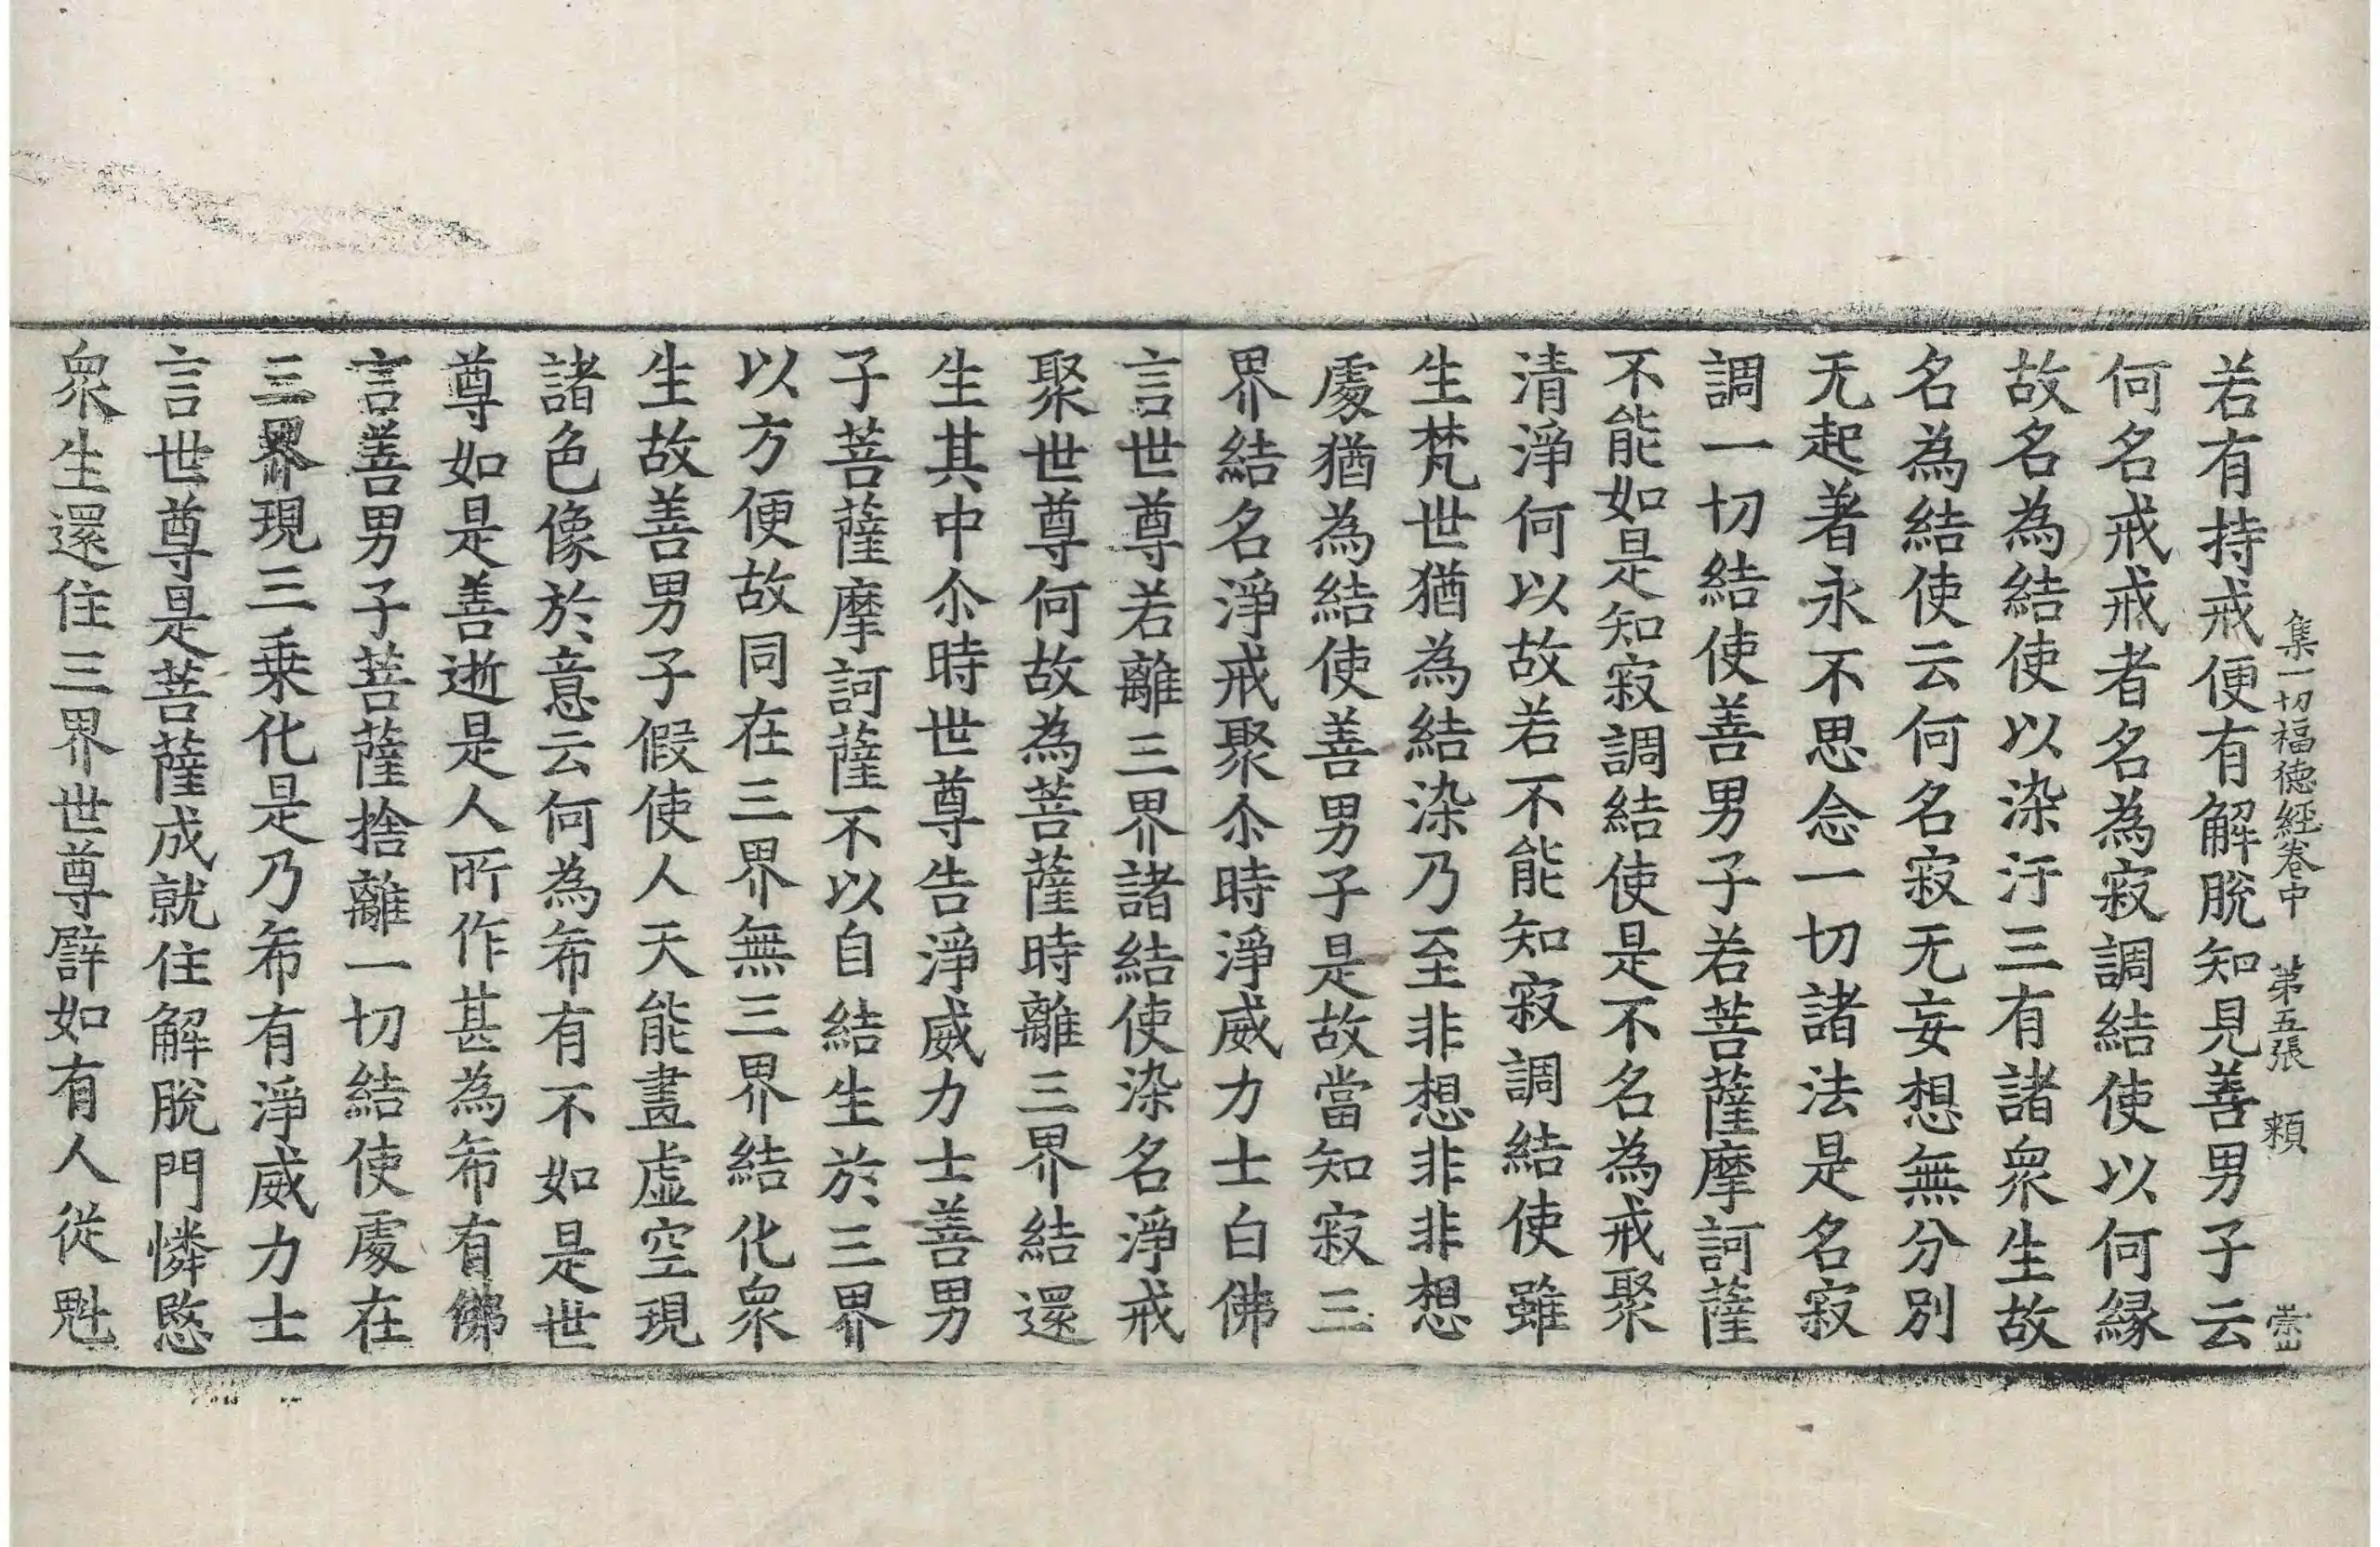 集一切福德經卷中 第五張 頼
若有持戒便有解脫知見善男子云
何名戒戒者名為寂調結使以何縁
故名為結使以染汙三有諸衆生故
名為結使云何名寂无妄想無分別
无起著永不思念一切諸法是名寂
調一切結使善男子若菩薩摩訶薩
不能如是知寂調結使是不名為戒聚
清淨何以故若不能知寂調結使雖
生梵世猶為結染乃至非想非非想
處猶為結使善男子是故當知寂三
界結名淨戒聚尒時淨威力士白佛
言世尊若離三界諸結使染名淨戒
聚世尊何故為菩薩時離三界結還
生其中尒時世尊告淨威力士善男
子菩薩摩訶薩不以自結生於三界
以方便故同在三界無三界結化衆
生故善男子假使人天能畫虛空現
諸色像於意云何為希有不如是世
尊如是善逝是人所作甚為希有佛
言善男子菩薩捨離一切結使處在
三界現三乗化是乃希有淨威力士
言世尊是菩薩成就住解脫門憐愍
衆生還住三界世尊譬如有人從魁